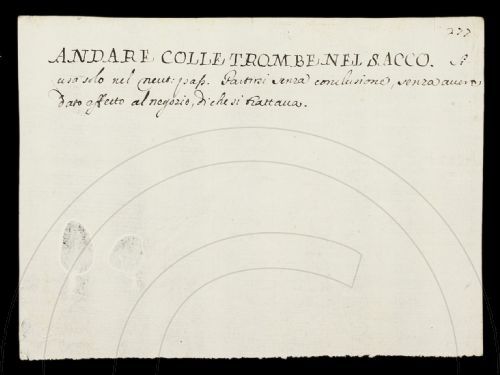 277
ANDARE COLLE TROMBE NEL SACCO. Si
usa solo nel neut: pass. Partirsi senza conclusione, senza aver
dato effetto al negozio, di che si trattava.